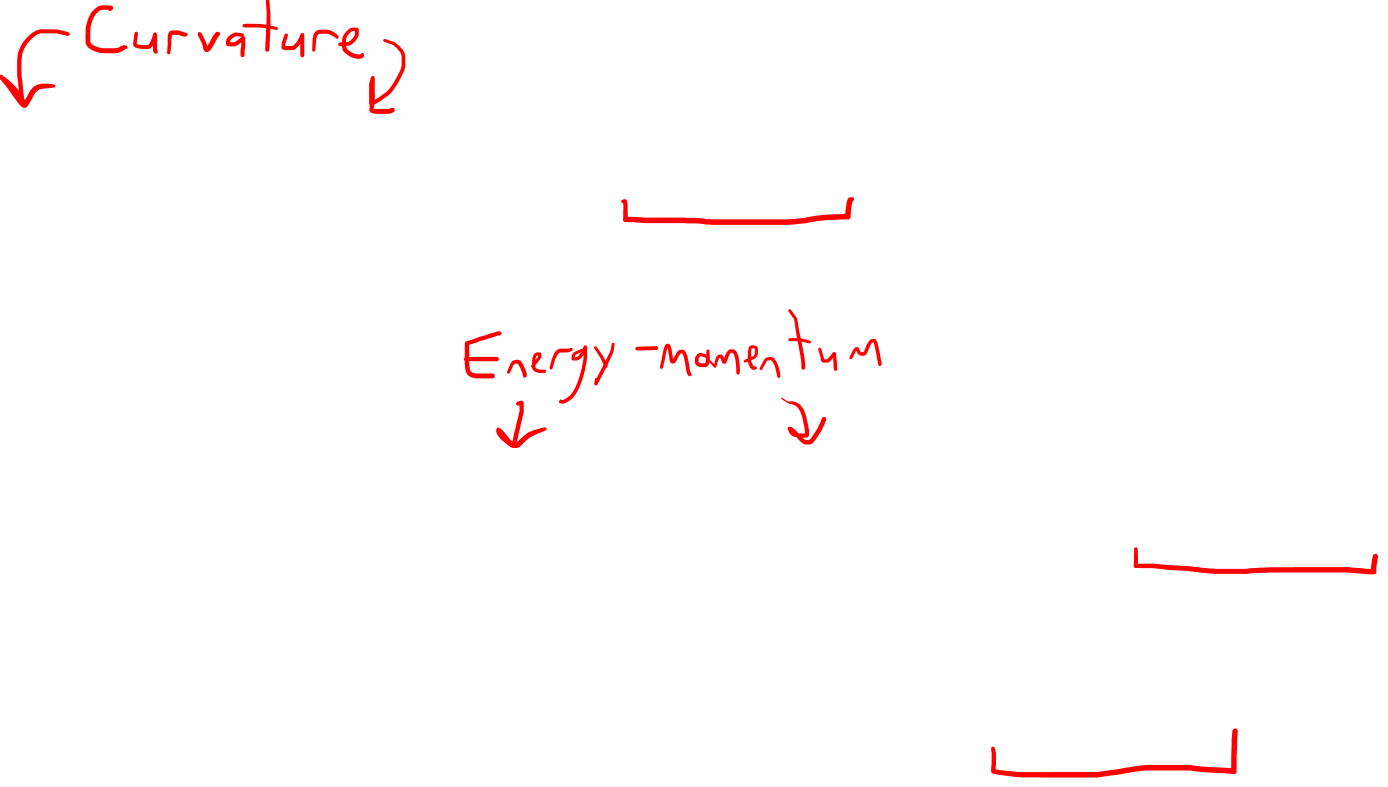 Curvature
Energy-momentum